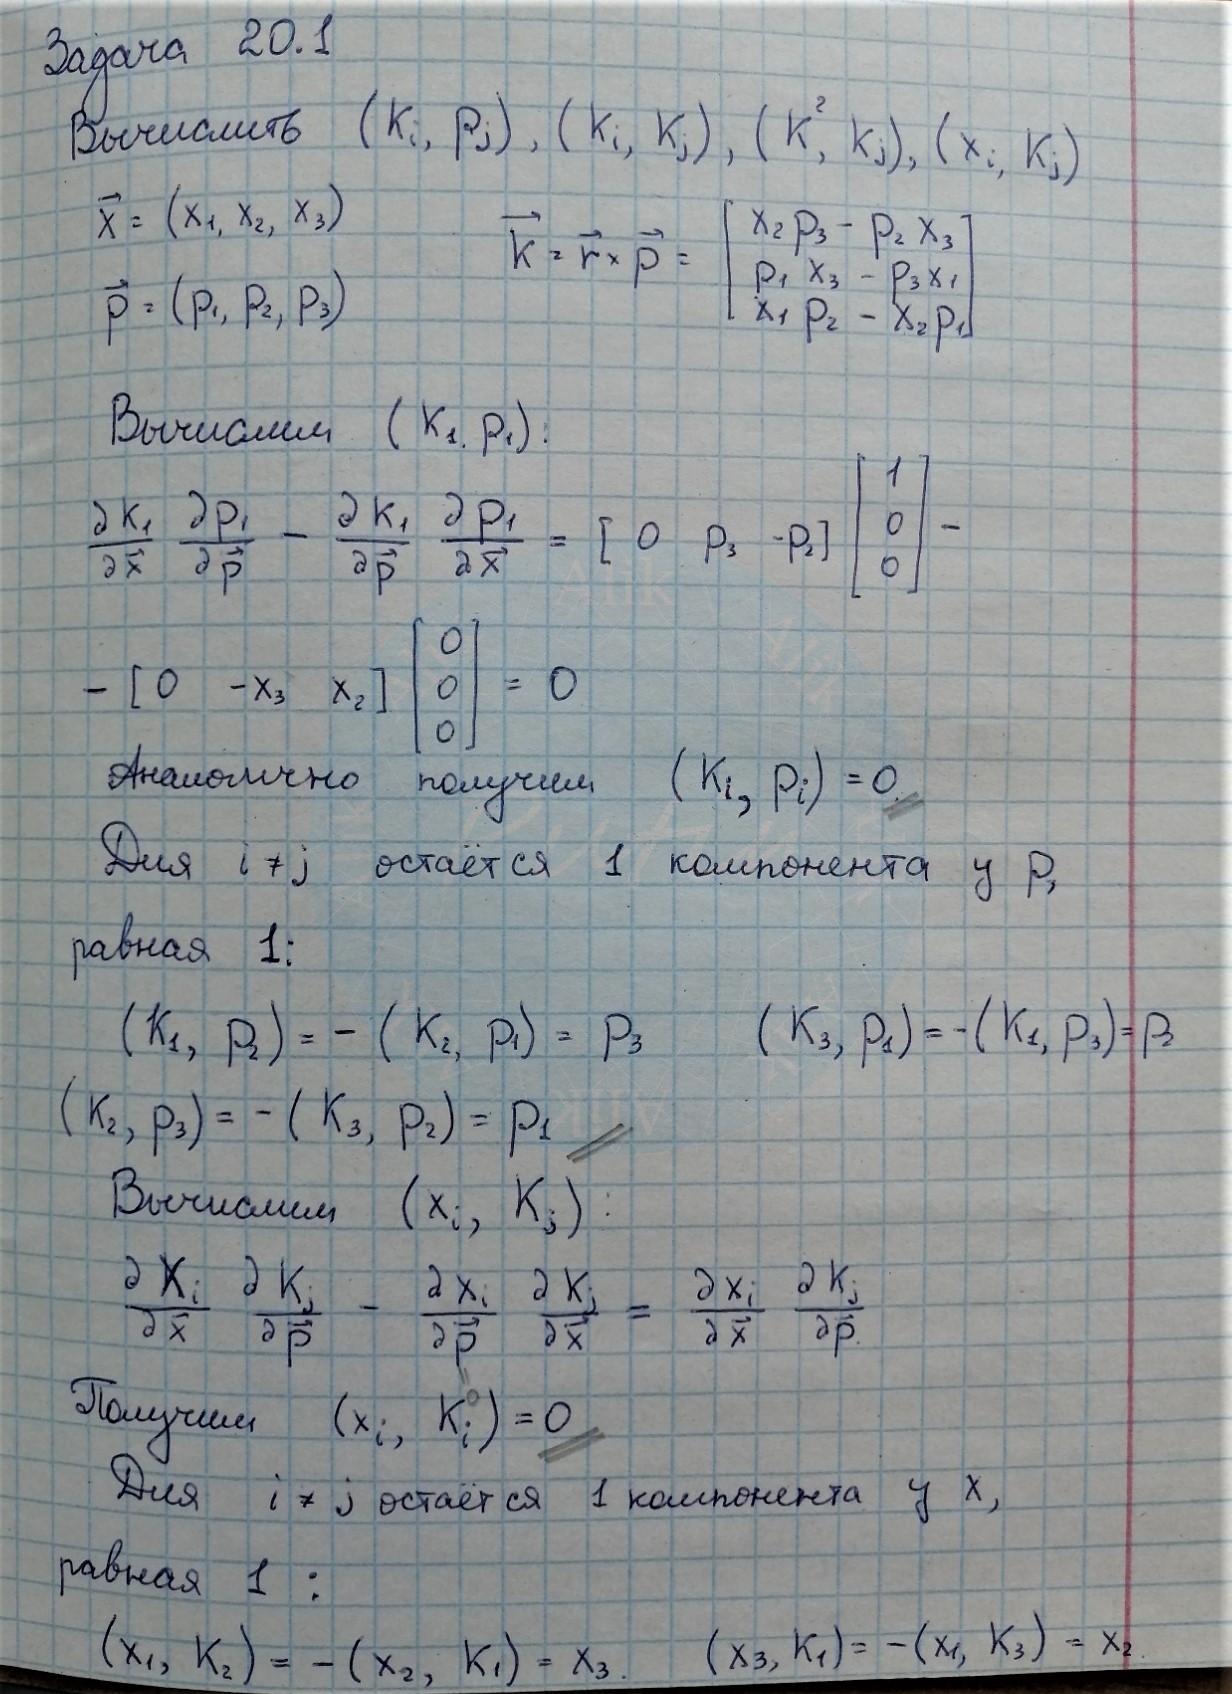 Задача 20.1
Вычислить (Ki, pj), (Ki, Kj), (K², Kj), (xi, Kj)
x⃗ = (x₁, x₂, x₃)
K⃗ = r⃗ × p⃗ = [x₂p₃ - p₂x₃
p₁x₃ - p₃x₁
x₁p₂ - x₂p₁]
p⃗ = (p₁, p₂, p₃)
Вычислим (K₁, p₁):
∂K₁/∂x⃗ ∂p₁/∂p⃗ - ∂K₁/∂p⃗ ∂p₁/∂x⃗ = [0 p₃ -p₂] [1 0 0] -
- [0 -x₃ x₂] [0 0 0] = 0
Аналогично получим (Ki, pi) = 0
Для i ≠ j остаётся 1 компонента у p,
равная 1:
(K₁, p₂) = - (K₂, p₁) = p₃ (K₃, p₁) = -(K₁, p₃) = p₂
(K₂, p₃) = - (K₃, p₂) = p₁
Вычислим (xi, Kj):
∂xi/∂x⃗ ∂Kj/∂p⃗ - ∂xi/∂p⃗ ∂Kj/∂x⃗ = ∂xi/∂x⃗ ∂Kj/∂p⃗.
0
Получим (xi, Ki) = 0
Для i ≠ j остаётся 1 компонента у x,
равная 1 :
(x₁, K₂) = - (x₂, K₁) = x₃. (x₃, K₁) = - (x₁, K₃) = x₂.
Alik
Alik
Alik